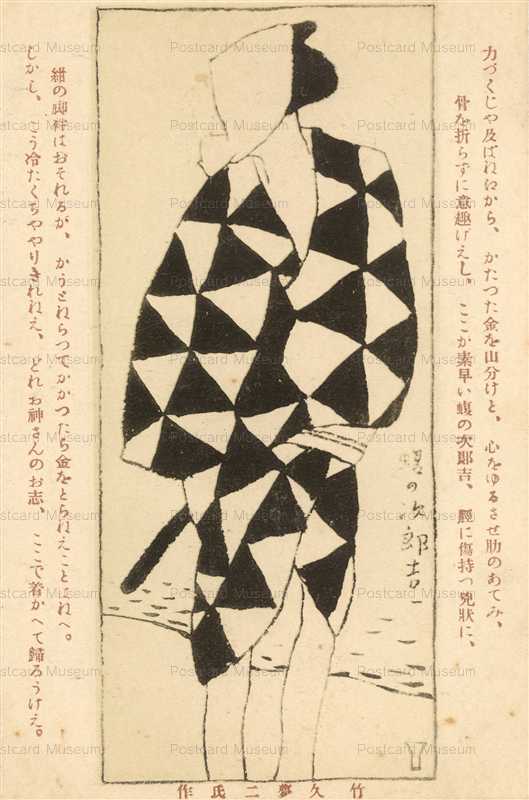 力づくじや及ばねねから、かたつた金を山分けと、心をゆるさせ肋のあてみ、
骨を折らずに意趣げえし。ここが素早い蝮の次郎吉、脛に傷持つ兇状に、
蝮の次郎吉
紺の脚絆はおそれるが、かうとねらつてかかつたら金をとらねえことはねへ。
しかし、こう冷たくちややりきれねえ、どれお神さんのお志、ここで着かへて歸ろうけえ。
竹久夢二氏作
Postcard Museum